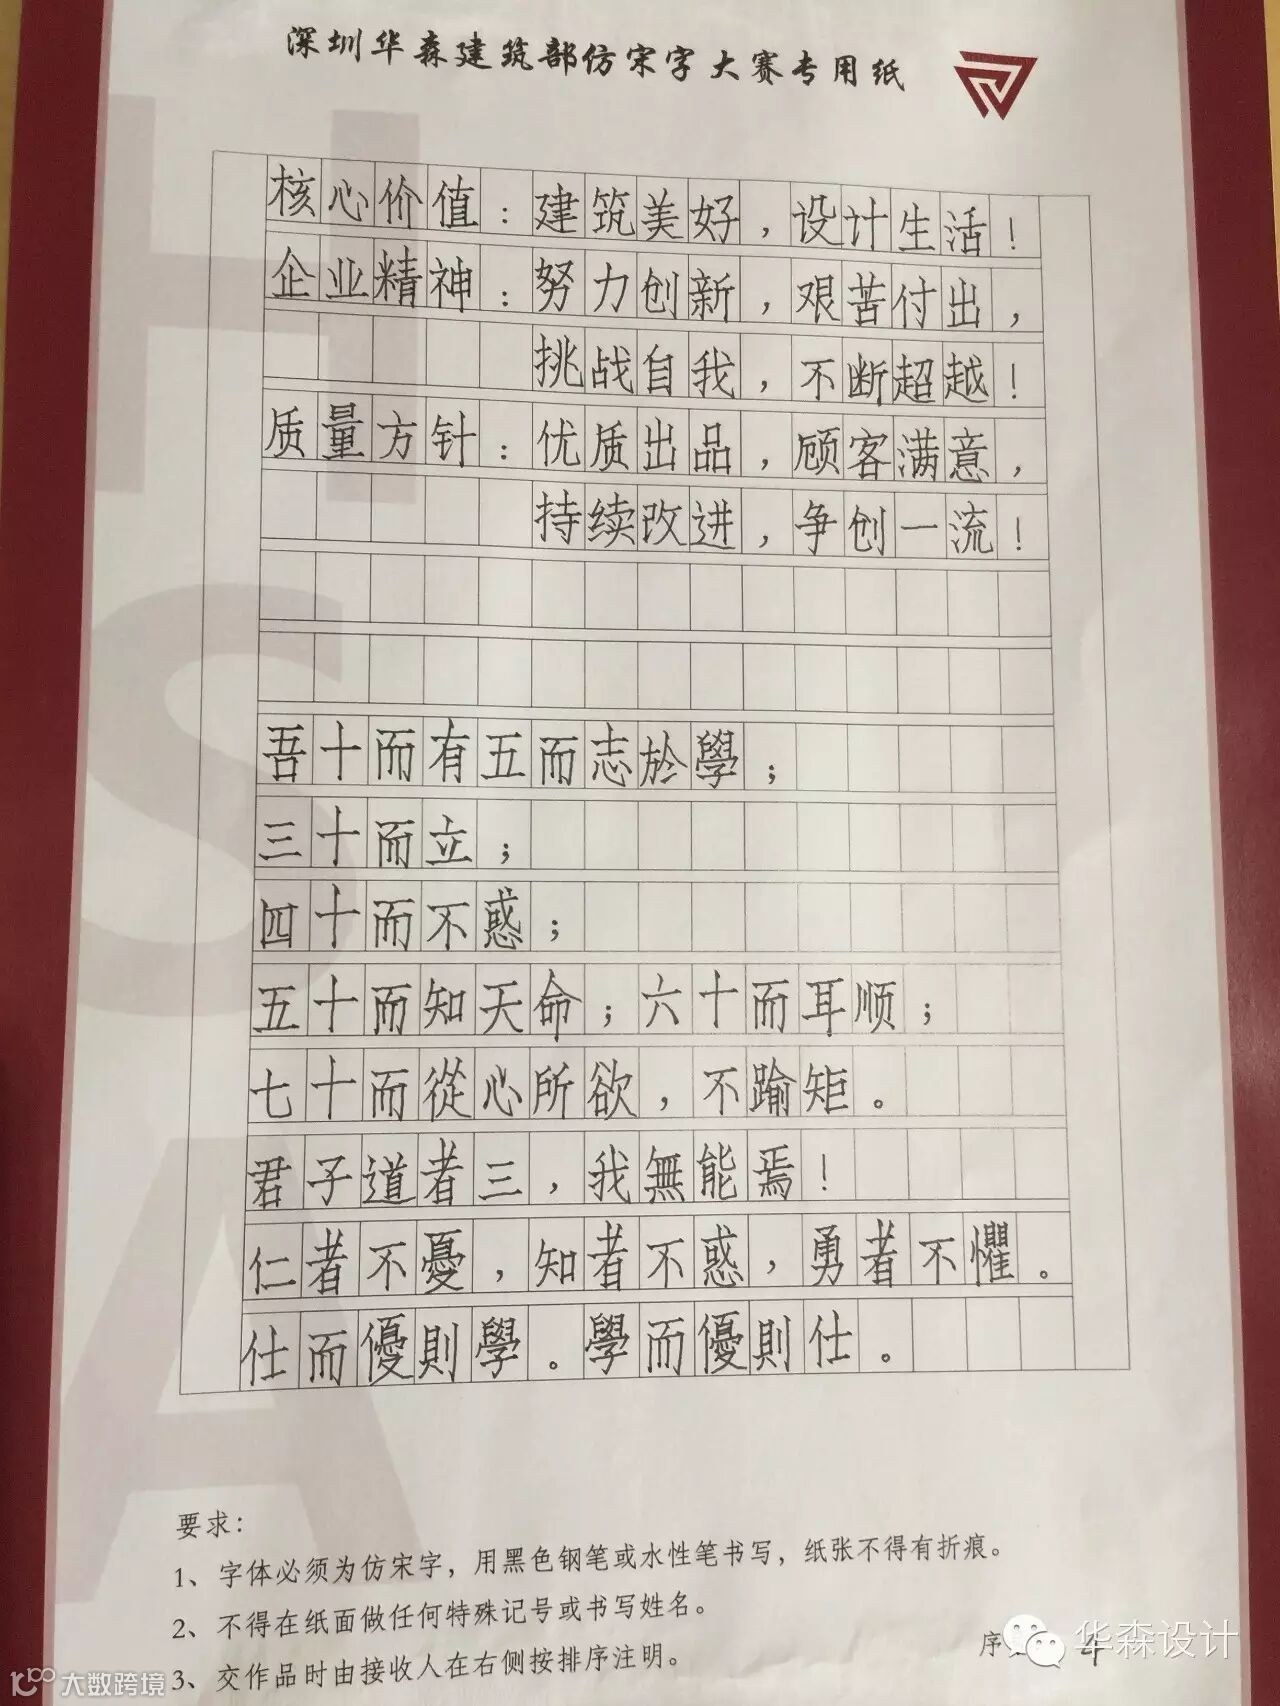 深圳华森建筑部仿宋字大赛专用纸
核心价值：建筑美好，设计生活！
企业精神：努力创新，艰苦付出，
挑战自我，不断超越！
质量方针：优质出品，顾客满意，
持续改进，争创一流！
吾十而有五而志於學；
三十而立；
四十而不惑；
五十而知天命；六十而耳顺；
七十而從心所欲，不踰矩。
君子道者三，我無能焉！
仁者不憂，知者不惑，勇者不懼。
仕而優則學。學而優則仕。
要求：
1、字体必须为仿宋字，用黑色钢笔或水性笔书写，纸张不得有折痕。
2、不得在纸面做任何特殊记号或书写姓名。
3、交作品时由接收人在右侧按排序注明。
序
华森设计
大数跨境
HSA